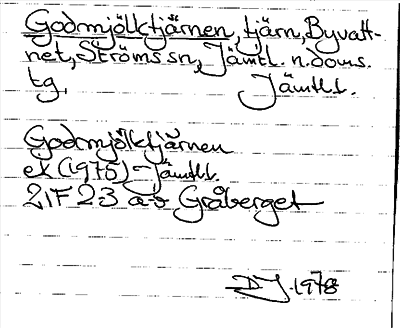 Godmjölktjärnen, tjärn, Byvatt-
net, Ströms sn, Jämtl. n. doms.
tg, Jämtl l.
Godmjölktjärnen
ek (1976) - Jämtl l.
21F 23 a-b Gråberget
DJ. 1978